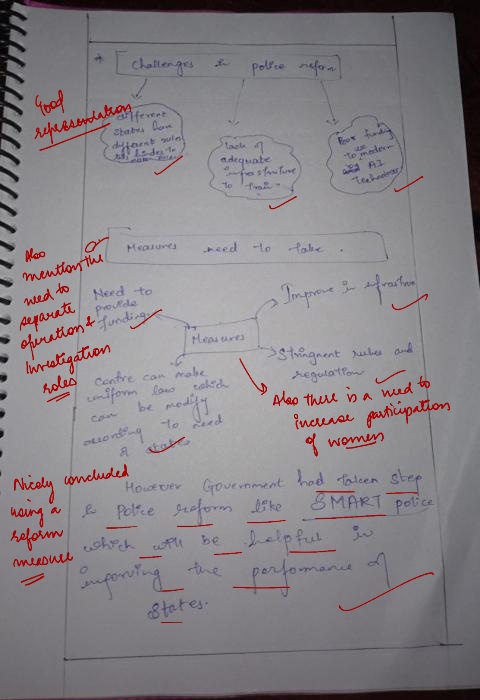 * Challenges in police reform
Good
representation
different
states have
different rules
lack of
adequate
infrastructure
to train
Poor funding
to modern
AI
technology
Measures need to take.
Also
mention the
need to
separate
operation &
Investigation
roles
Need to
provide
funding
Improve in
Measures
Stringnent rules and
regulation
Centre can make
uniform law which
can be modify
according to need
of states
Also there is a need to
increase participation
of women
Nicely concluded
using a
reform
measure
However Government had taken step
Police reform like SMART police
which will be helpful in
the performance of
states.